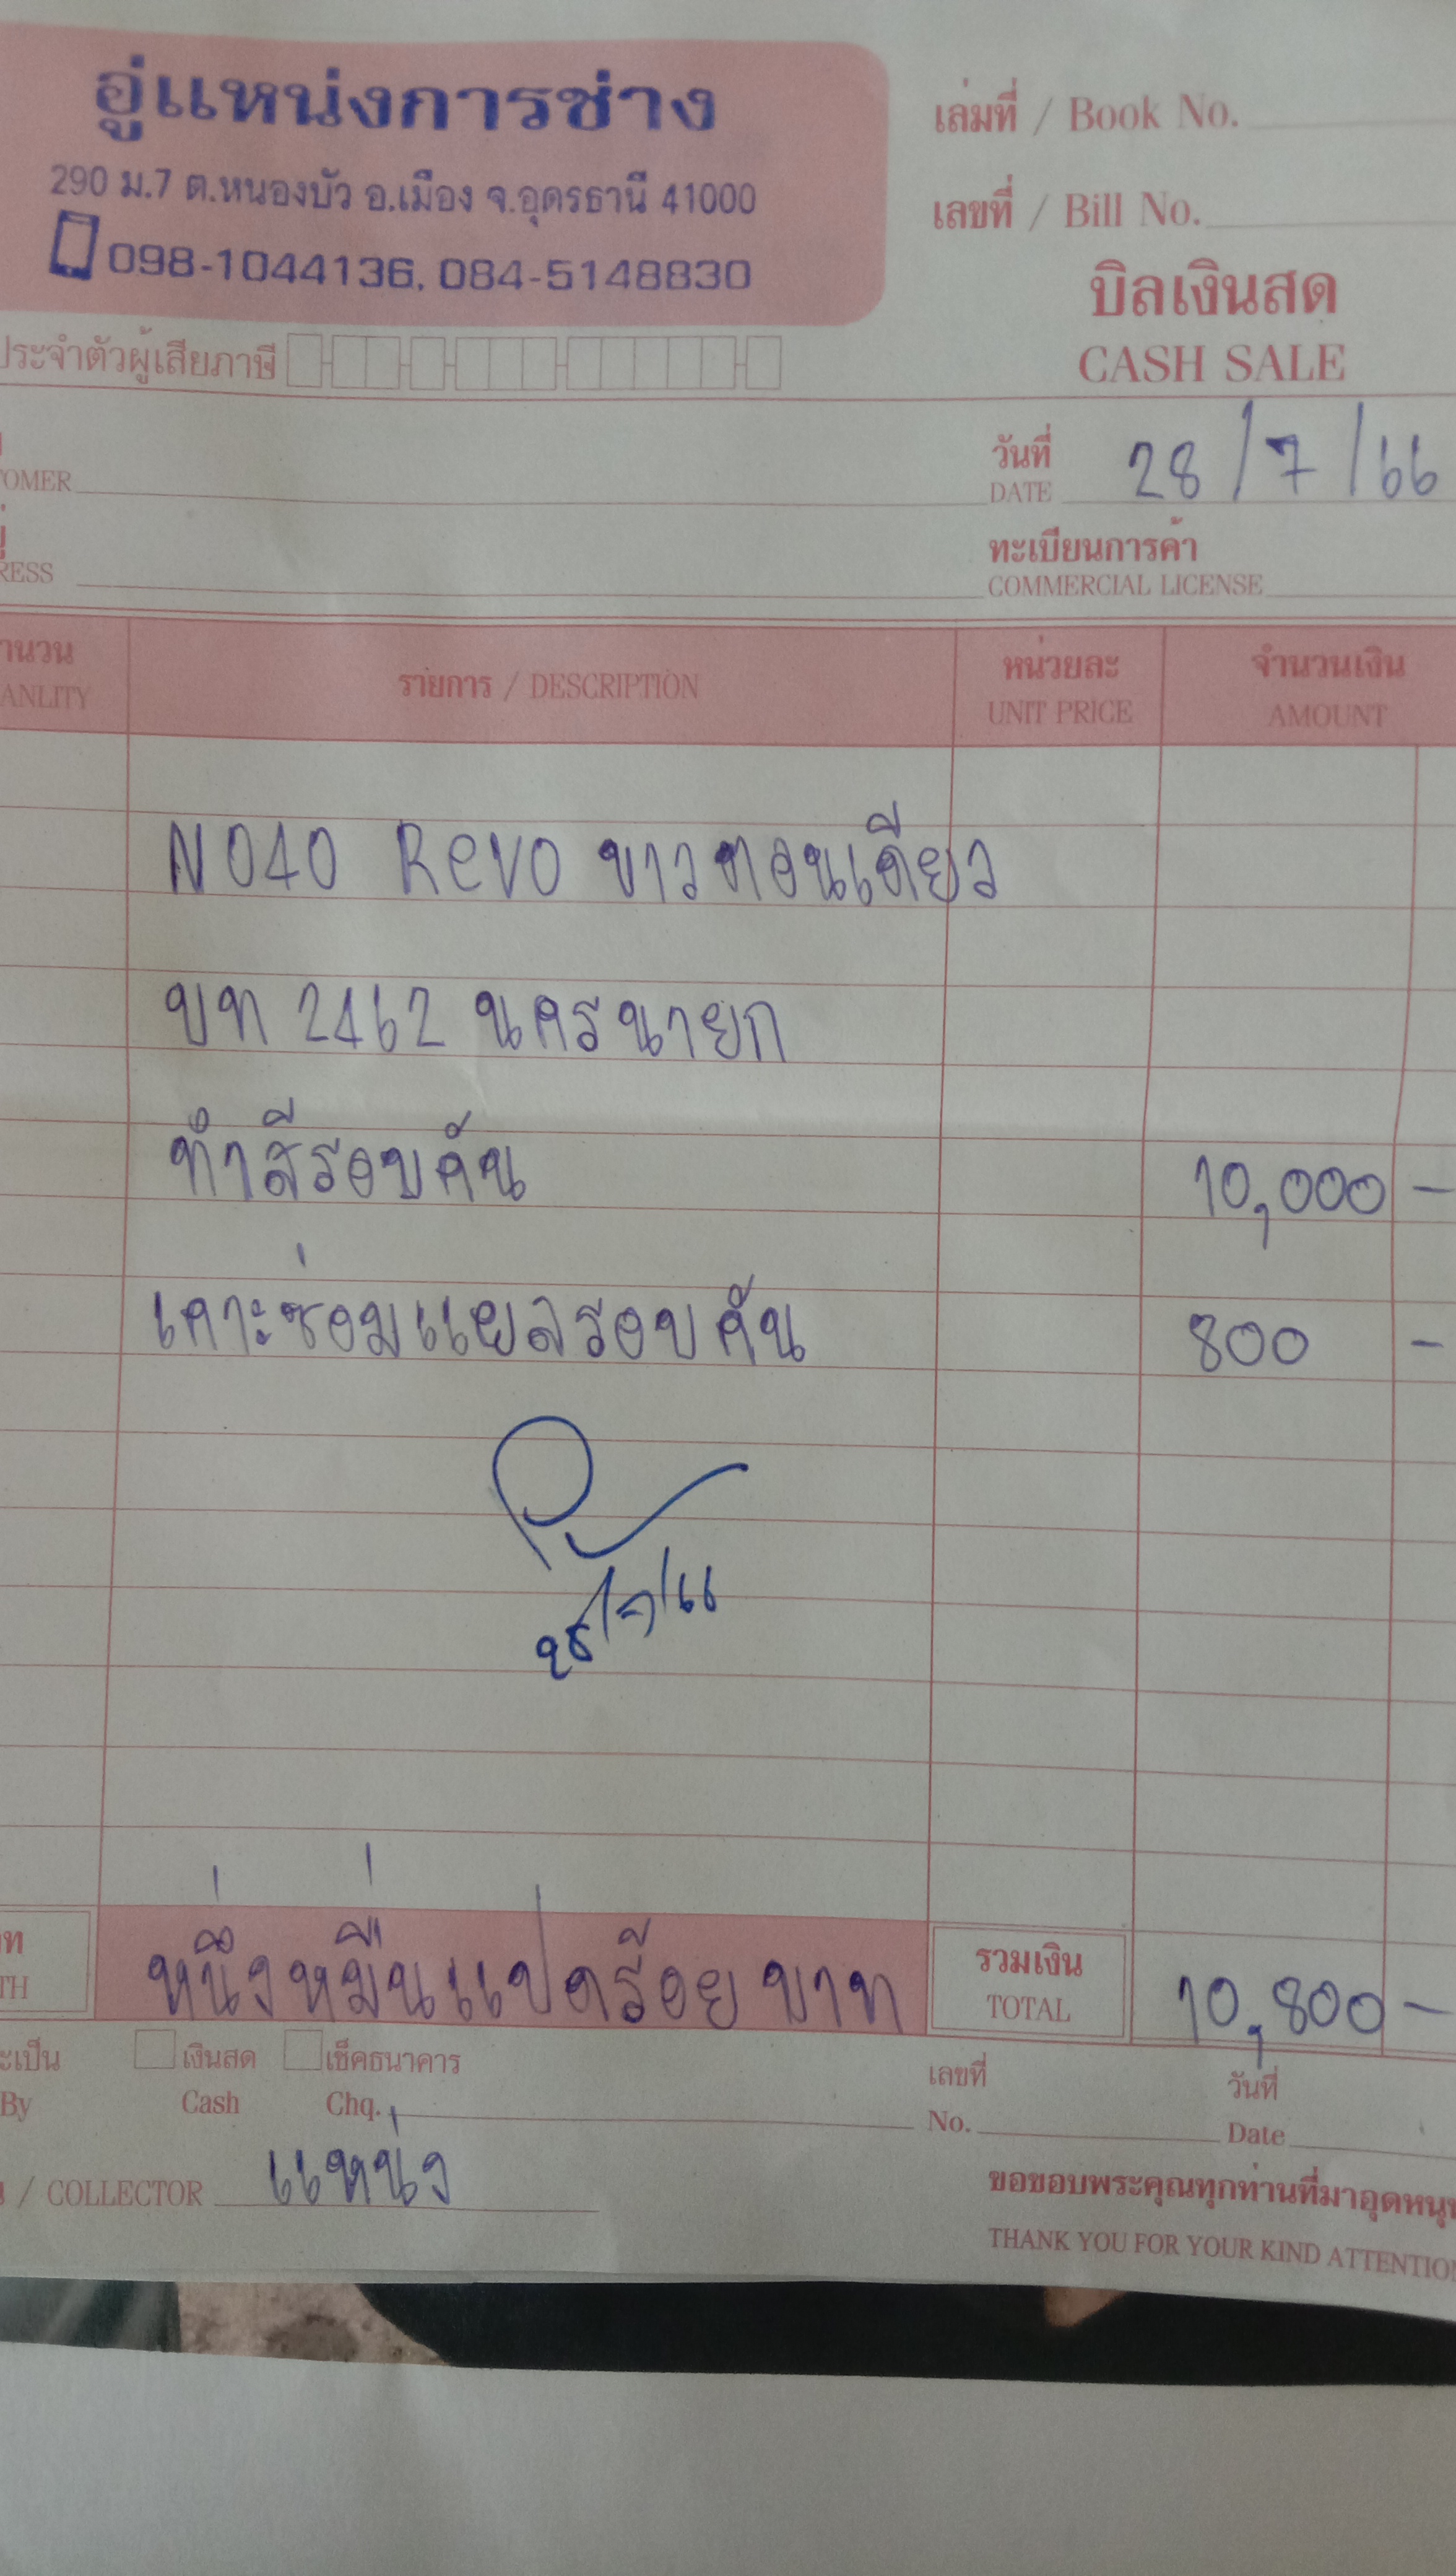 อู่แหน่งการช่าง
290 ม.7 ต.หนองบัว อ.เมือง จ.อุดรธานี 41000
098-1044136, 084-5148830
เล่มที่ / Book No.
เลขที่ / Bill No.
บิลเงินสด
CASH SALE
ประจำตัวผู้เสียภาษี
วันที่ 28/7/66
OMER DATE
ทะเบียนการค้า
RESS COMMERCIAL LICENSE
านวน รายการ / DESCRIPTION หน่วยละ จำนวนเงิน
ANLITY UNIT PRICE AMOUNT
NO40 Revo ขาวตอนเดียว
บท 2462 นครนายก
ทำสีรอบคัน 10,000 -
เคาะซ่อมแผลรอบคัน 800 -
28/7/66
หนึ่งหมื่นแปดร้อยบาท รวมเงิน 10,800 -
TH TOTAL
ะเป็น เงินสด เช็คธนาคาร เลขที่ วันที่
By Cash Chq. No. Date
/ COLLECTOR แหน่ง
ขอขอบพระคุณทุกท่านที่มาอุดหนุน
THANK YOU FOR YOUR KIND ATTENTIO